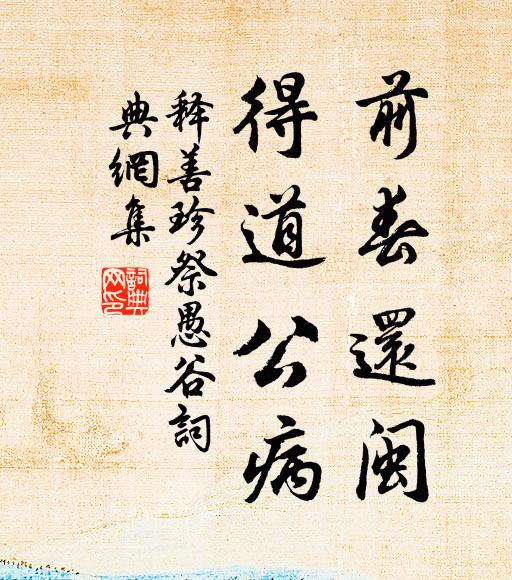 前春還閩
得道公病
释善珍祭愚谷詞
典網集
詞典
网印